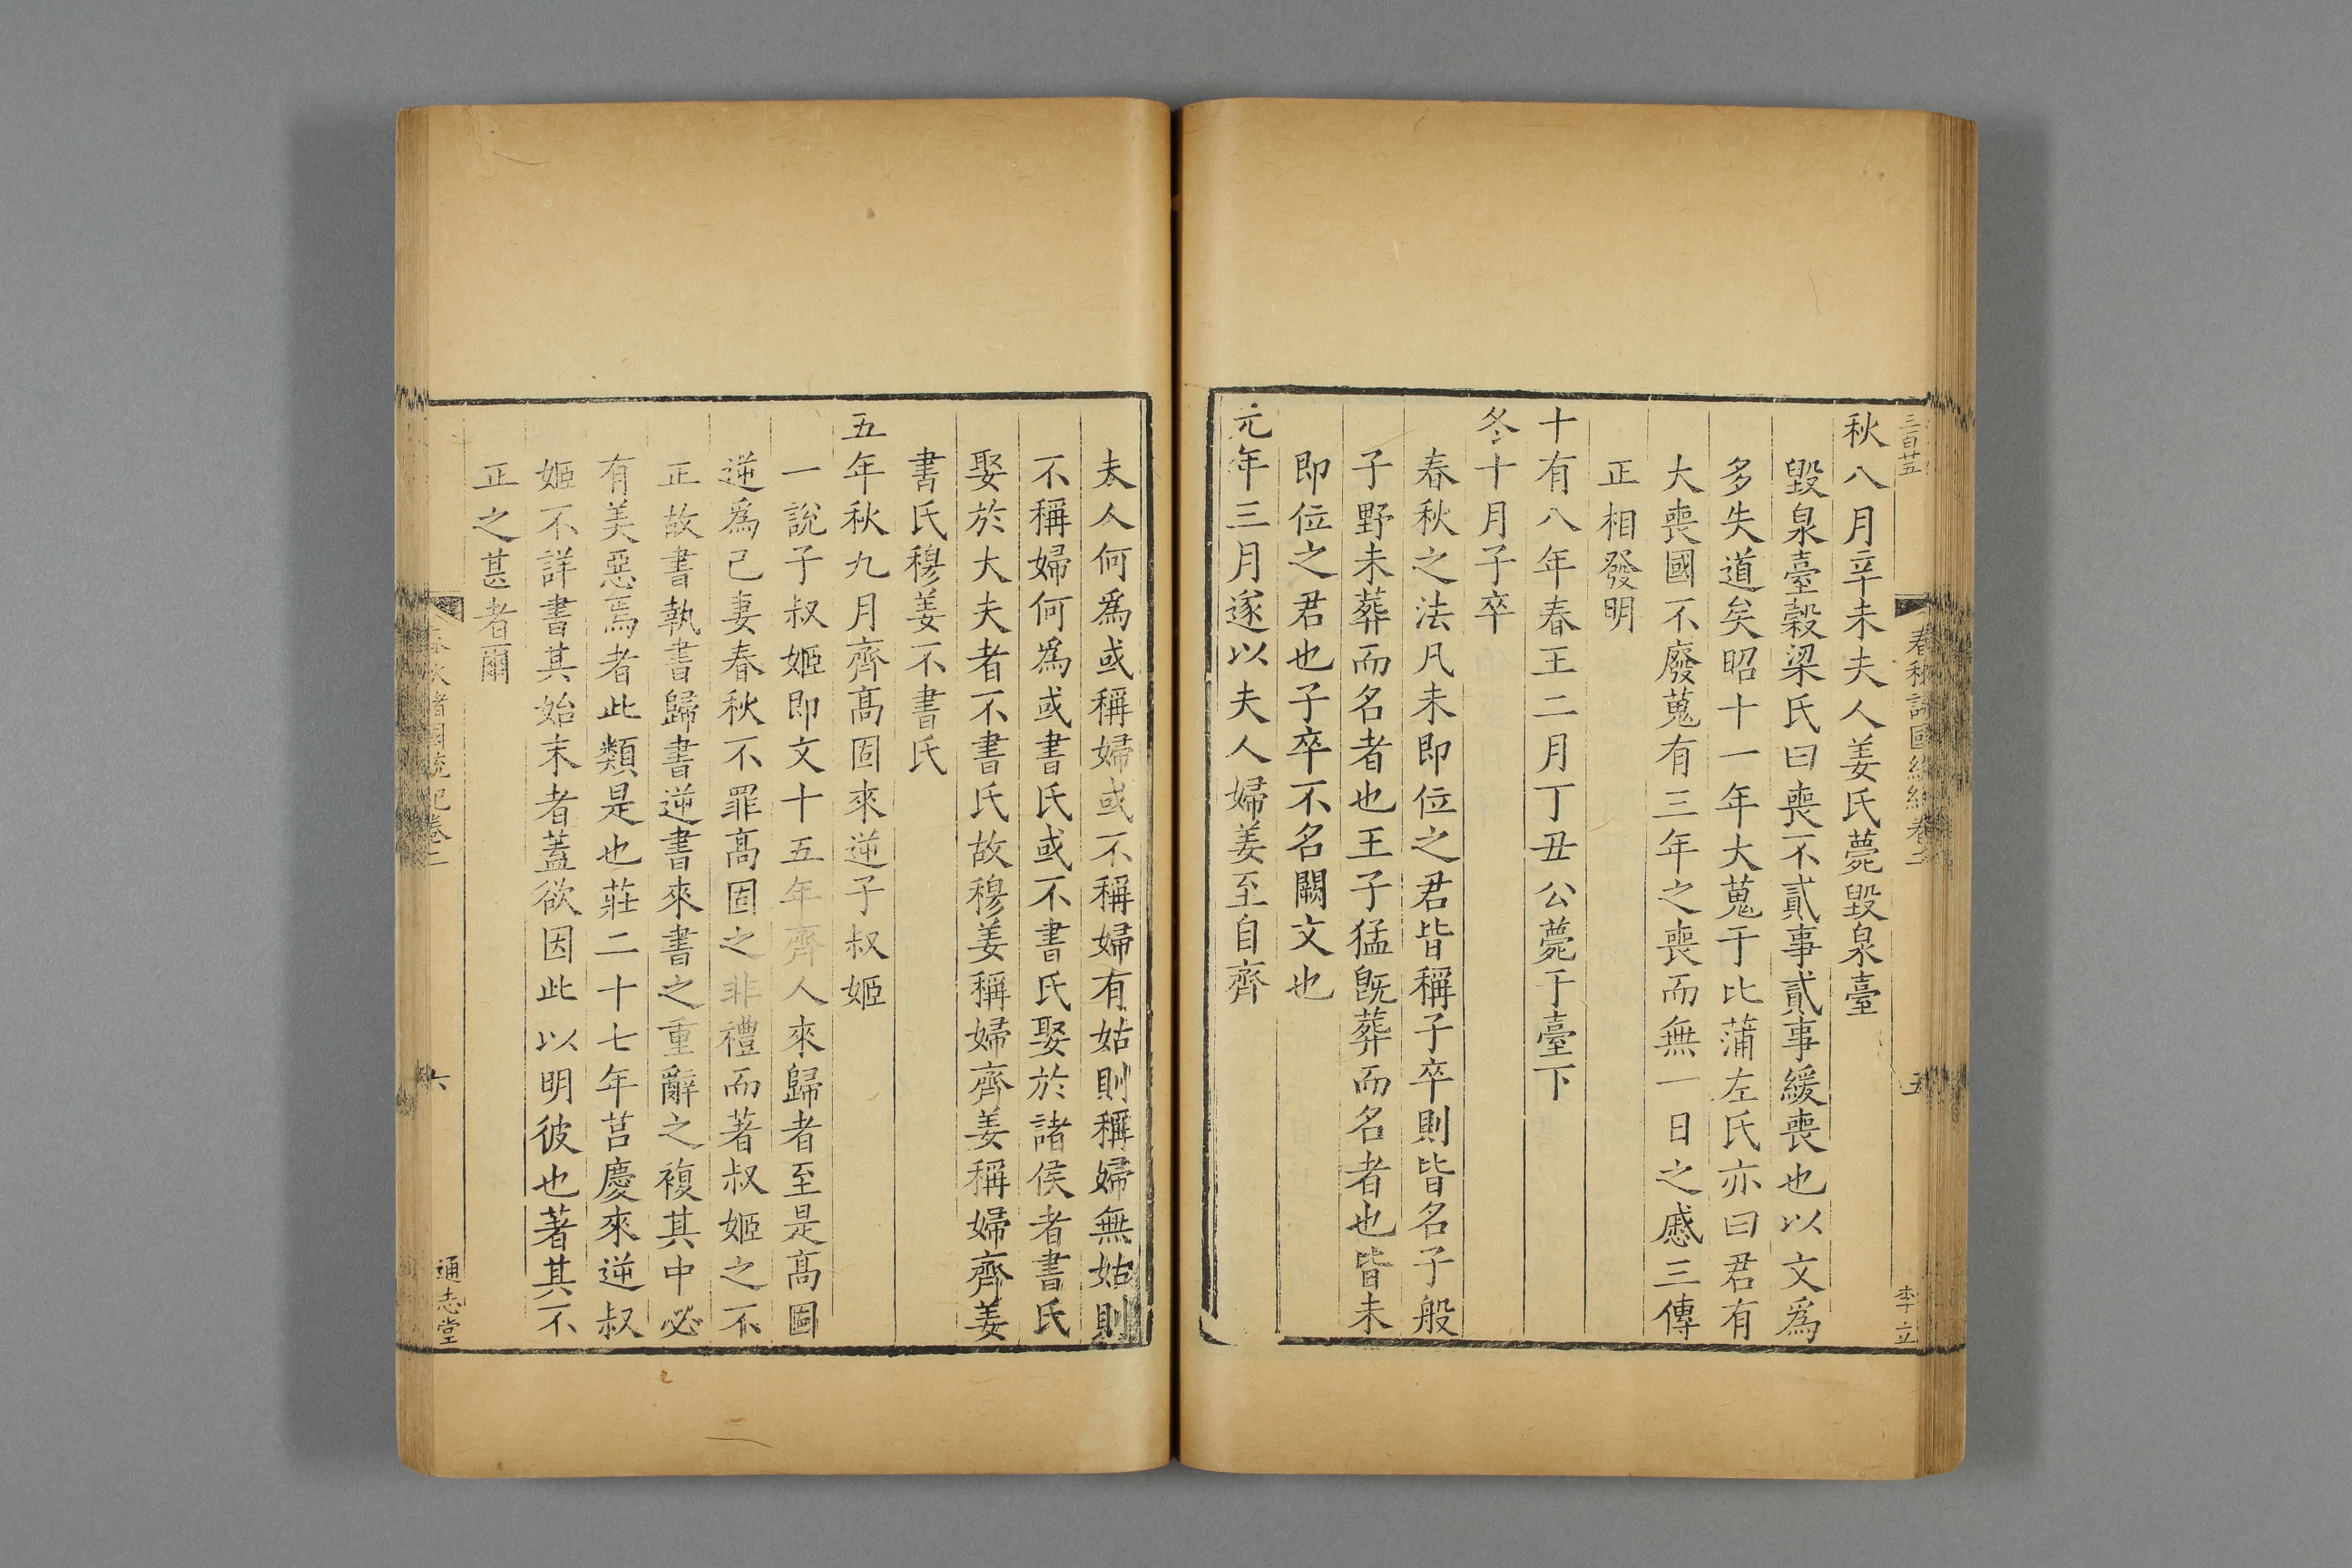 三百廿五
春秋諸國統紀卷二
五
李立
秋八月辛未夫人姜氏薨毀泉臺
毀泉臺穀梁氏曰喪不貳事貳事緩喪也以文爲
多失道矣昭十一年大蒐于比蒲左氏亦曰君有
大喪國不廢蒐有三年之喪而無一日之慼三傳
正相發明
十有八年春王二月丁丑公薨于臺下
冬十月子卒
春秋之法凡未即位之君皆稱子卒則皆名子般
子野未葬而名者也王子猛旣葬而名者也皆未
即位之君也子卒不名闕文也
元年三月遂以夫人婦姜至自齊
夫人何爲或稱婦或不稱婦有姑則稱婦無姑則
不稱婦何爲或書氏或不書氏娶於諸侯者書氏
娶於大夫者不書氏故穆姜稱婦齊姜稱婦齊姜
書氏穆姜不書氏
五年秋九月齊髙固來逆子叔姬
一說子叔姬即文十五年齊人來歸者至是髙固
逆爲己妻春秋不罪髙固之非禮而著叔姬之不
正故書執書歸書逆書來書之重辭之複其中必
有美惡焉者此類是也莊二十七年莒慶來逆叔
姬不詳書其始末者蓋欲因此以明彼也著其不
正之甚者爾
春秋諸國統紀卷二
六
通志堂